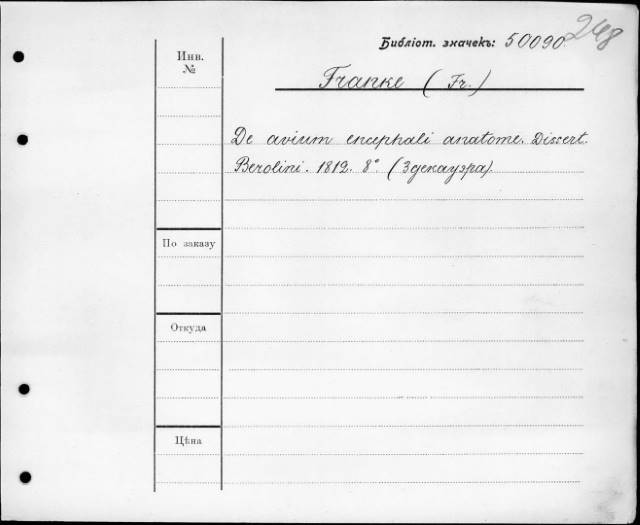 248
Библіот. значекъ: 50090.
Инв.
№
Franke (Fr.)
De avium encephali anatome. Dissert.
Berolini. 1812. 8° (Здекауэра).
По заказу
Откуда
Цѣна